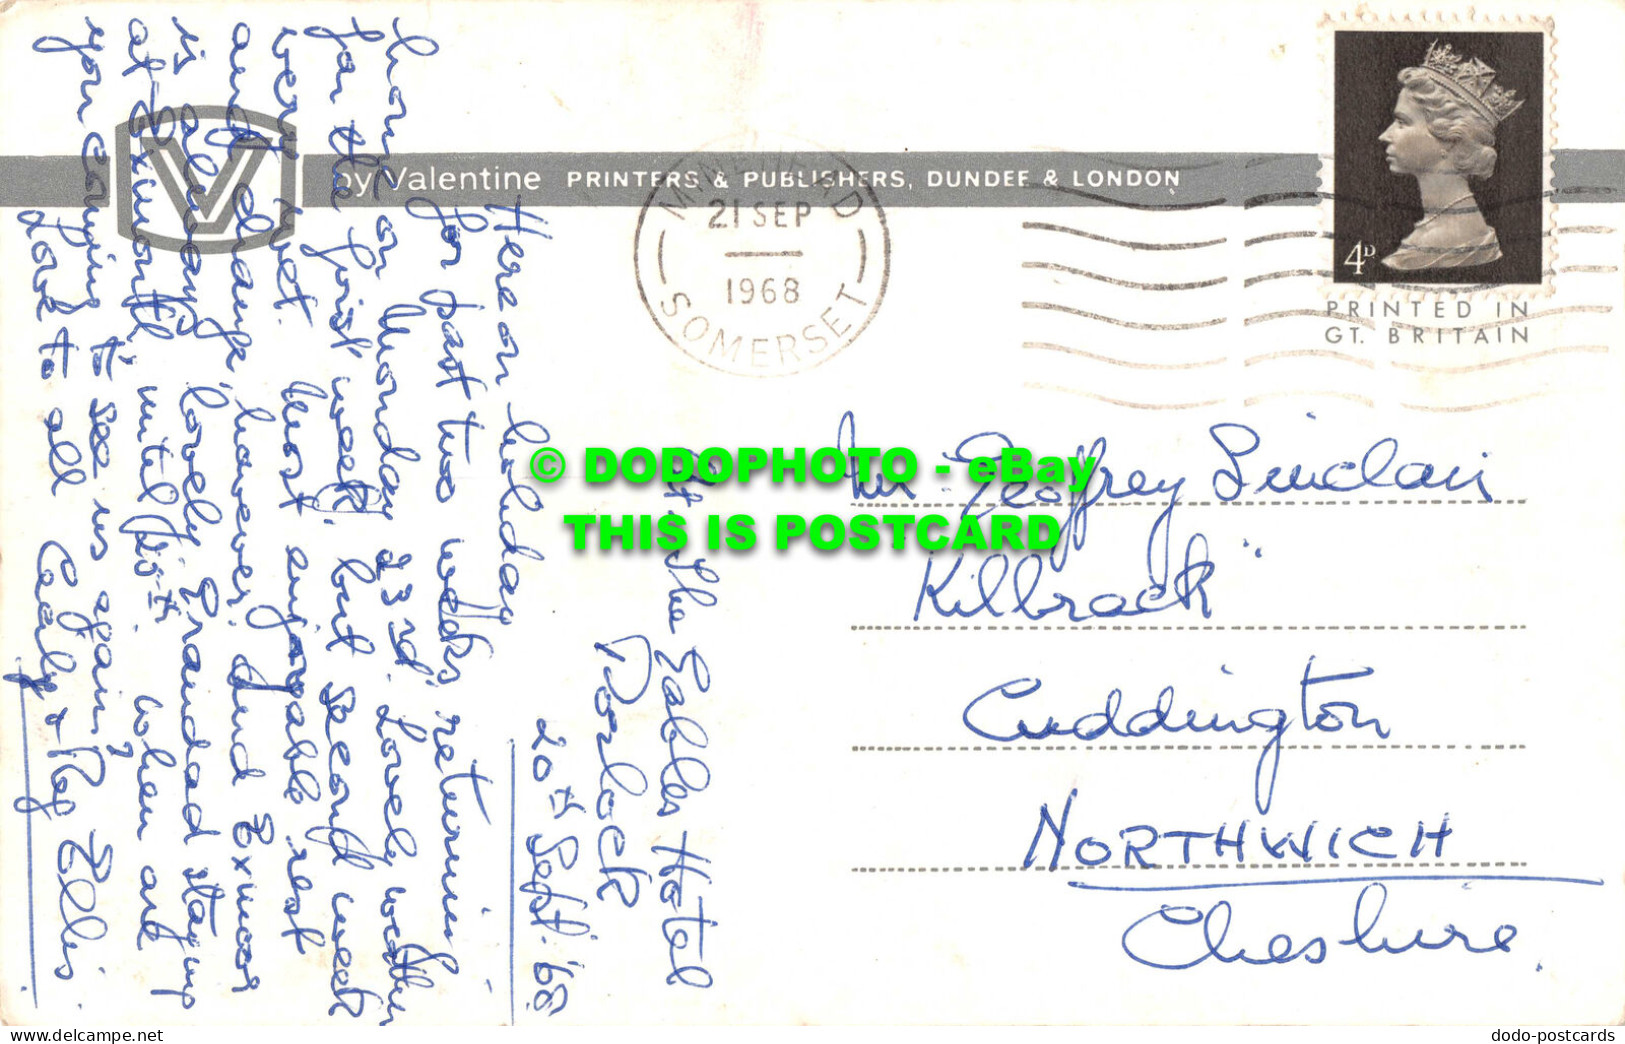 by Valentine PRINTERS & PUBLISHERS, DUNDEE & LONDON
MINEHEAD
21 SEP
1968
SOMERSET
4D
PRINTED IN
GT. BRITAIN
© DODOPHOTO - eBay
THIS IS POSTCARD
Mr. Geoffrey Sinclair
Kilbrack"
Cuddington
NORTHWICH
Cheshire.
The Gables Hotel
Porlock
20th Sept. '68
Here on holiday
for past two weeks, returning
home on Monday 23rd. Lovely weather
for the first week, but second week
very wet. Most enjoyable rest
and change, however. and Exmoor
is always lovely. Grandad staying
at Exmouth, until 25th. When are
you coming to see us again?
Love to all
& Reg Ellis.
dodo-postcards